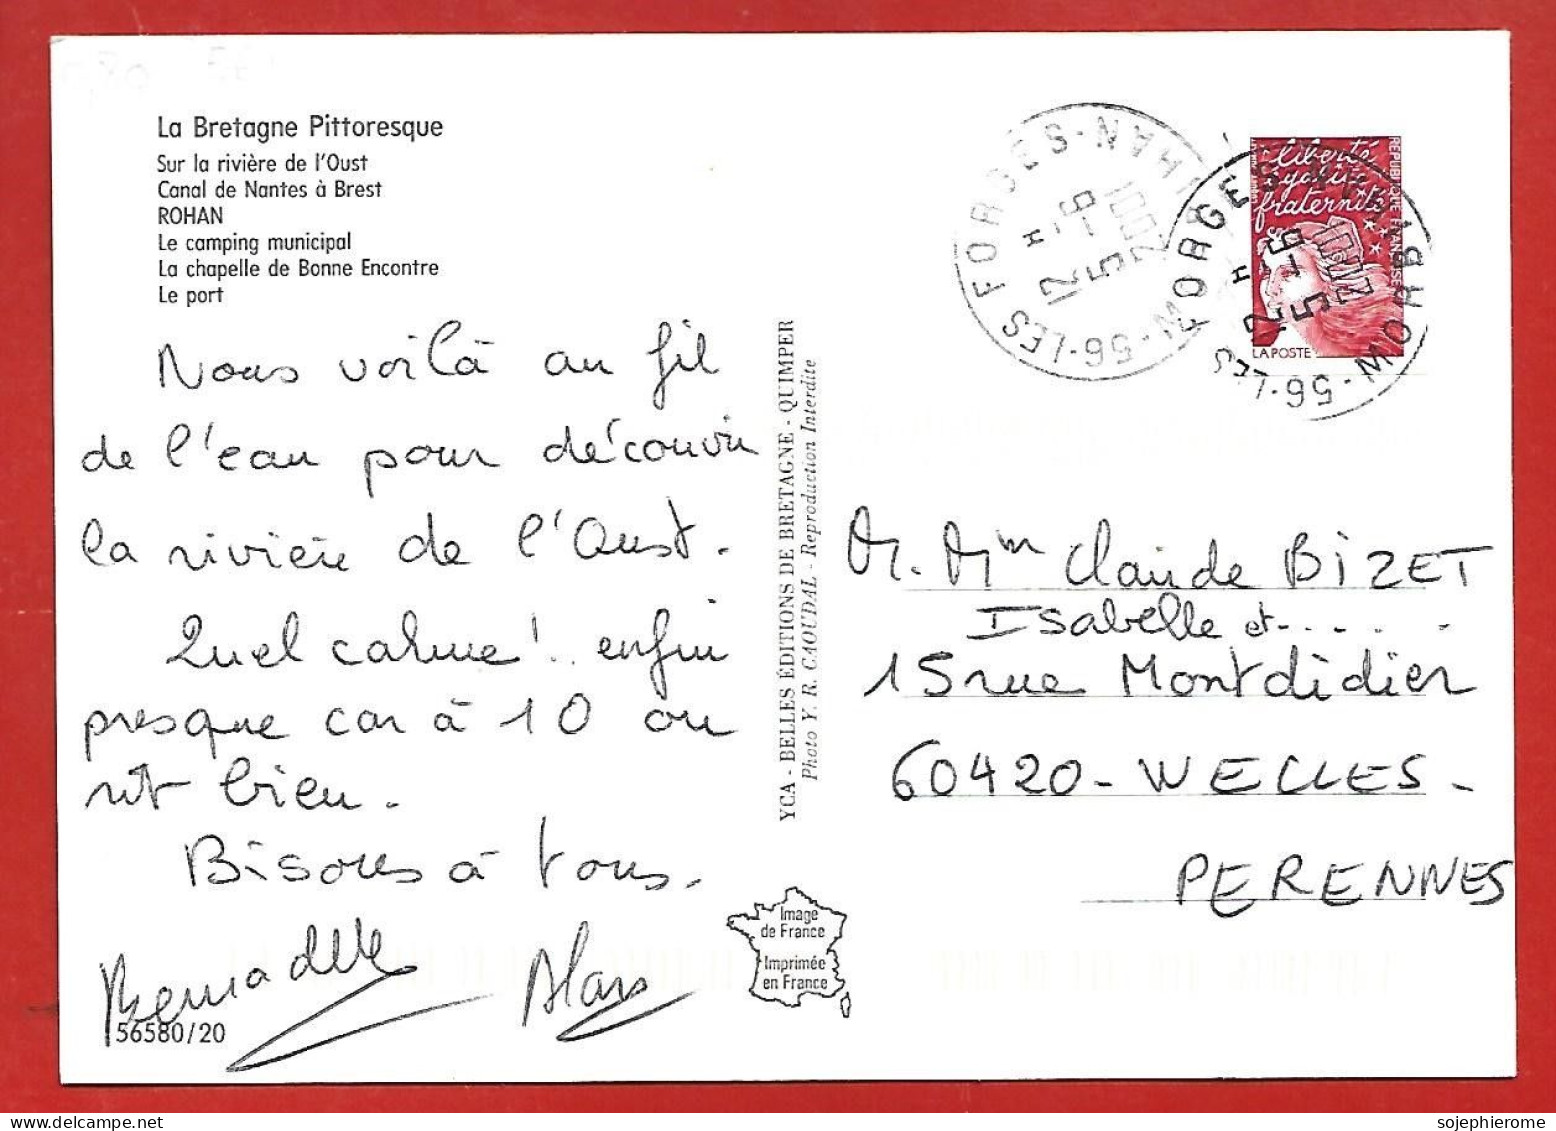 La Bretagne Pittoresque
Sur la rivière de l'Oust
Canal de Nantes à Brest
ROHAN
Le camping municipal
La chapelle de Bonne Encontre
Le port
Nous voilà au fil
de l'eau pour découvrir
la rivière de l'Oust.
Quel calme! .. enfin
presque car à 10 ou
nt bien.
Bisous à tous.
Bernadette Alain
56580/20
YCA - BELLES ÉDITIONS DE BRETAGNE - QUIMPER
Photo Y. R. CAOUDAL - Reproduction Interdite
Image
de France
Imprimée
en France
56-LES FORGES-
MORBIHAN
12 H
5-6
2001
liberté
égalité
fraternité
REPUBLIQUE FRANÇAISE
LA POSTE
56-LES FORGES
MORBI
12 H
5-6
M. Mm Claude BIZET
Isabelle et- . . . .
15 rue Montdidier
60420 - WELLES -
PERENNES
sojephierome